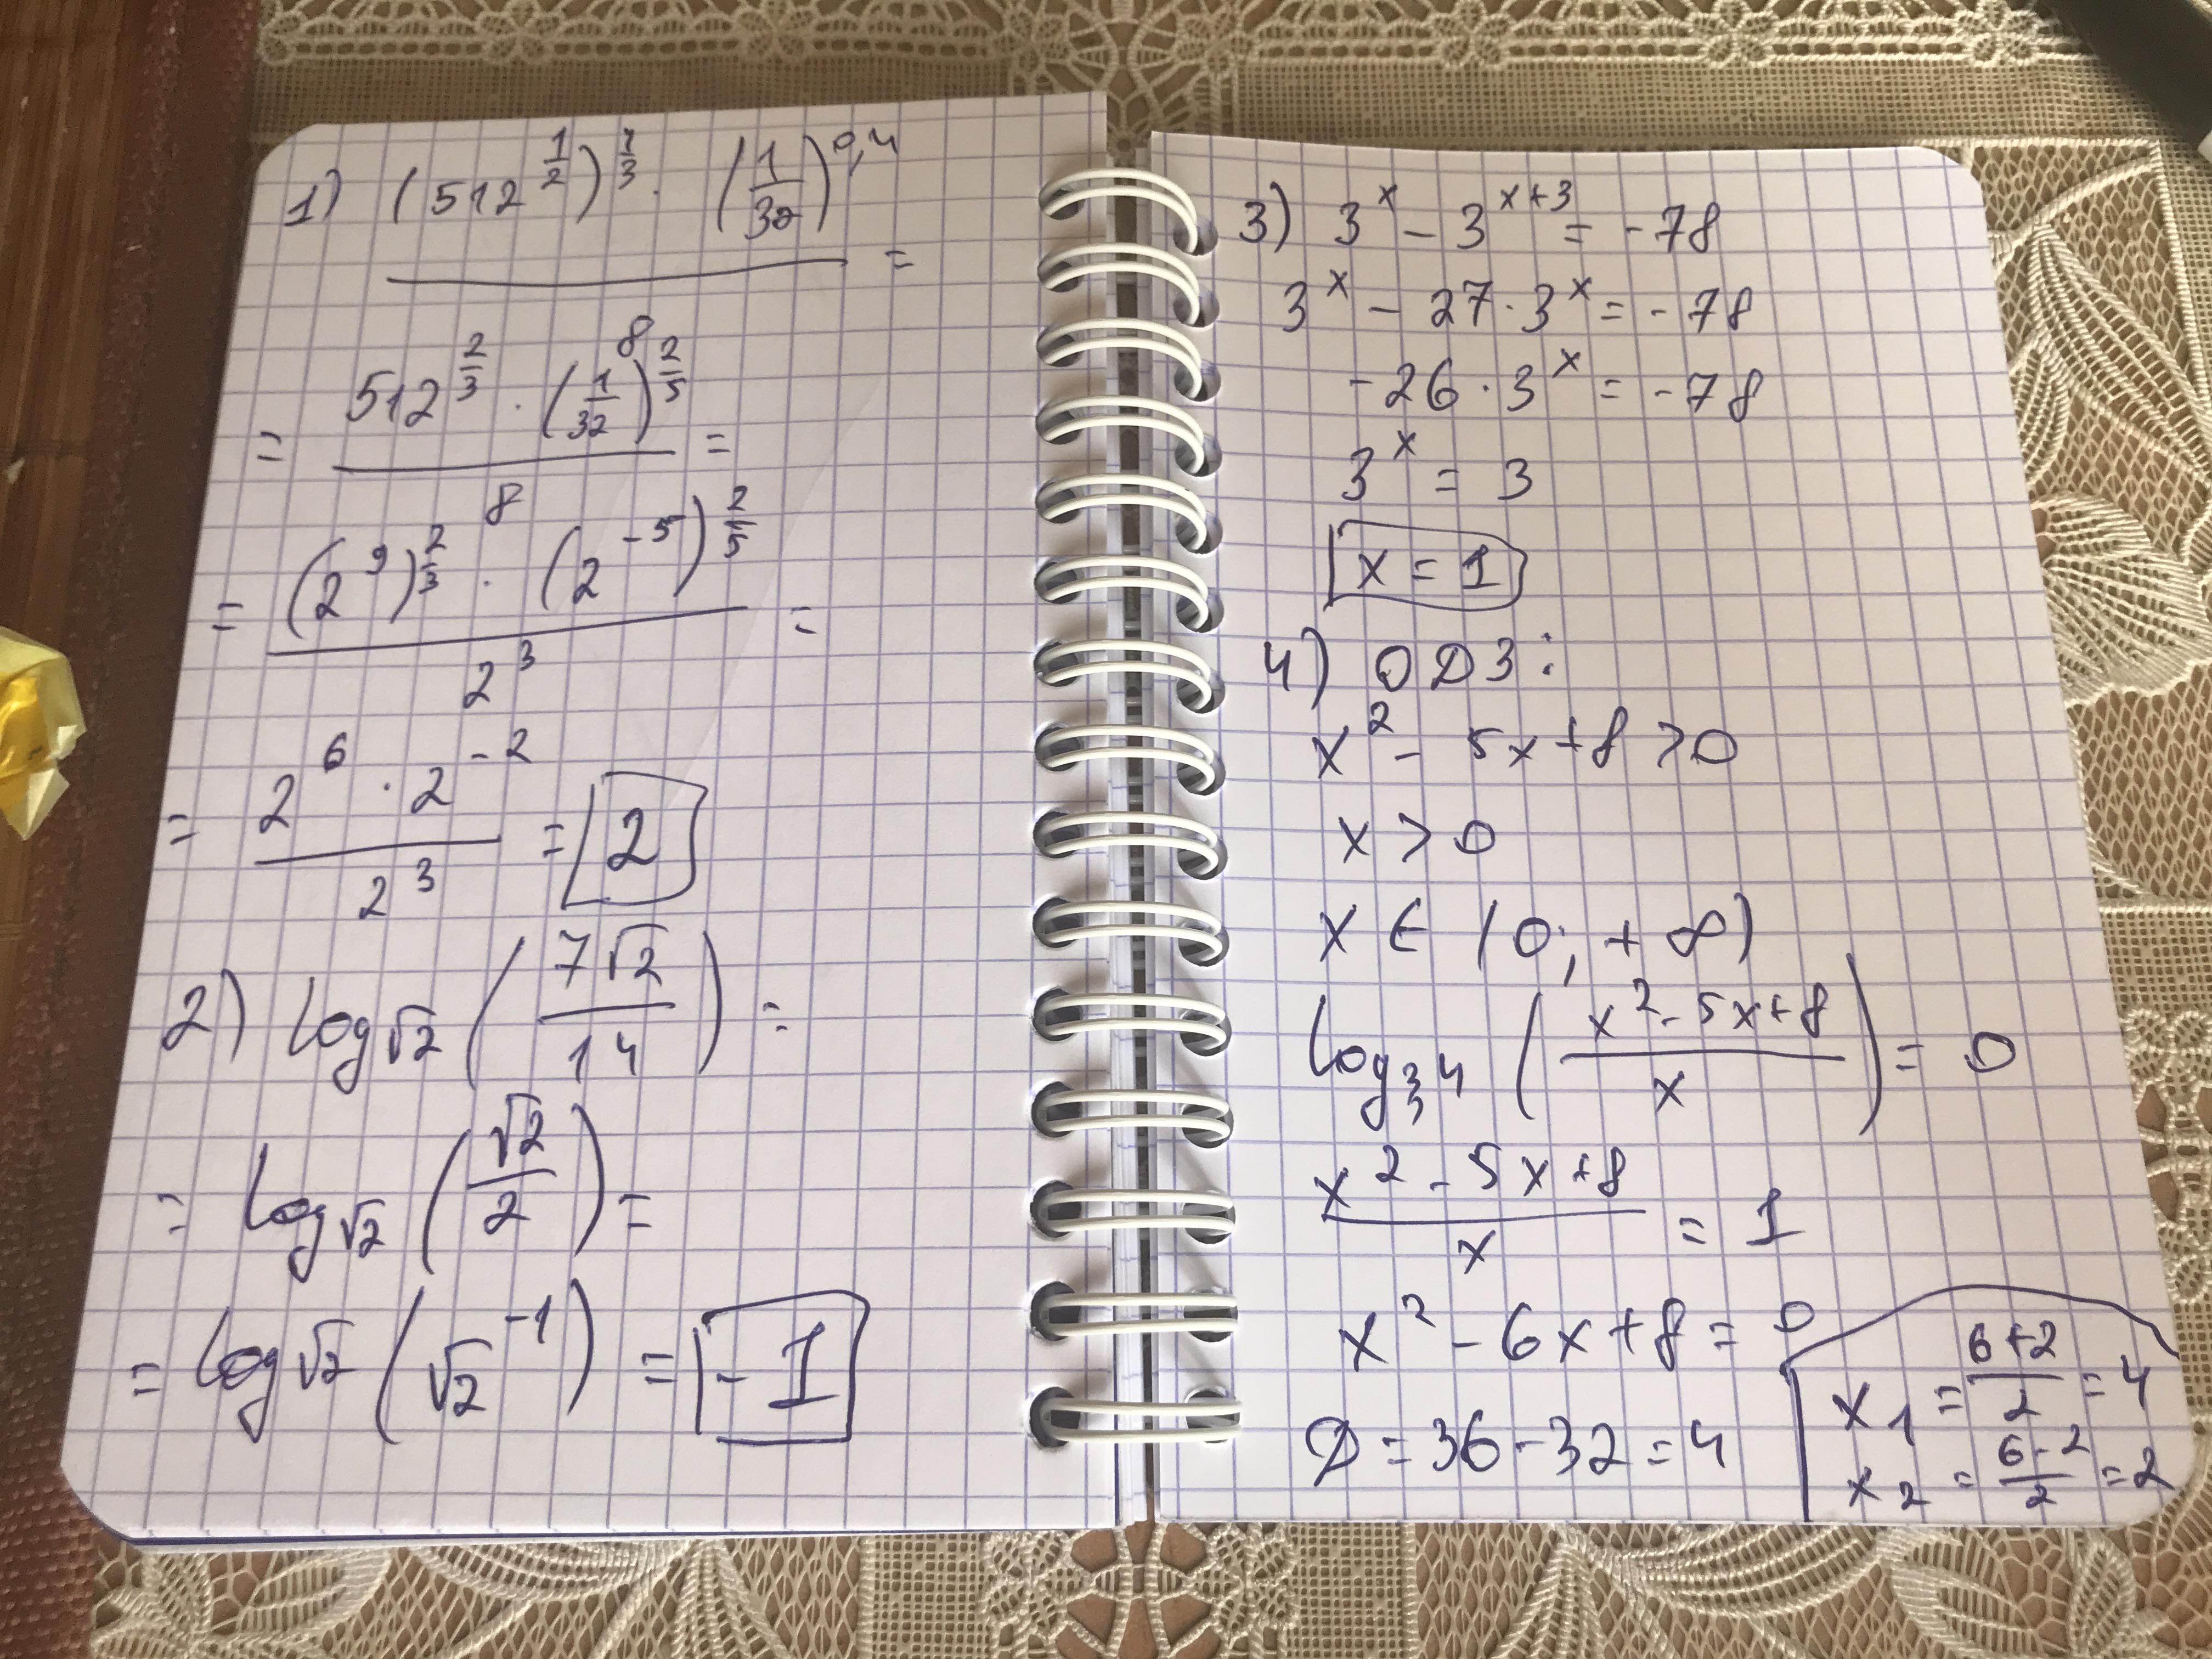 1) (512^(1/2))^(1/3) · (1/32)^0,4 / 8 =
= 512^(2/3) · (1/32)^(2/5) / 8 =
= (2^9)^(2/3) · (2^-5)^(2/5) / 2^3 =
= 2^6 · 2^-2 / 2^3 = 2
2) log√2 (7√2 / 14) =
= log√2 (√2 / 2) =
= log√2 (√2^-1) = -1
3) 3^x - 3^x+3 = -78
3^x - 27 · 3^x = -78
-26 · 3^x = -78
3^x = 3
x = 1
4) ОДЗ:
x² - 5x+8 >0
x > 0
x ∈ (0; + ∞)
log34 (x² - 5x+8 / x) = 0
x² - 5x+8 / x = 1
x² - 6x+8 = 0
D = 36-32 = 4
x1 = 6+2 / 2 = 4
x2 = 6-2 / 2 = 2